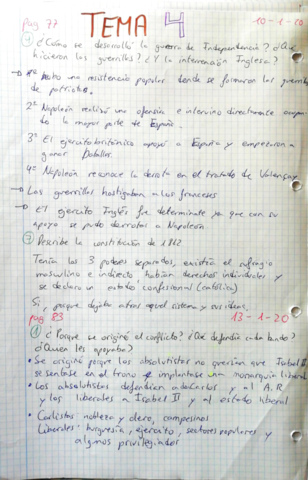 pag 77 TEMA 4 10-1-20
④ ¿Cómo se desarrolló la guerra de Independencia? ¿Qué
hicieron las guerrillas? ¿Y la intervención Inglesa?
1º Hubo una resistencia popular donde se formaron las guerrillas
de patriotas.
2º Napoleón realizó una ofensiva e intervino directamente ocupando
la mayor parte de España.
3º El ejercito britónico apoyó a España y empezaron a
ganar batallas.
4º Napoleón reconoce la derrota en el tratado de Valençay
Las guerrillas hostigaban a los franceses
El ejercito Inglés fue determinate ya que con su
apoyo se pudo derrotar a Napoleón
⑦ Describe la constitución de 1812
Tenía los 3 poderes separados, existía el sufragio
masculino e indirecto habían derechos individuales y
se declaro un estado confesional (católico)
Si, porque dejaba atras aquel sistema y sus ideas.
pag 83 13-1-20
① ¿Porque se originó el conflicto? ¿Qué defendía cada bando?
¿Quien les apoyaba?
• Se originó porque los absolutistas no querían que Isabel II
se sentase en el trono e implantase una monarquía liberal
• Los absolutistas defendían a Carlos y al A.R
y los liberales a Isabel II y al estado liberal
• Carlistas nobleza y clero, campesinos
Liberales: burgresía, ejército, sectores populares y
algunos privilegiados